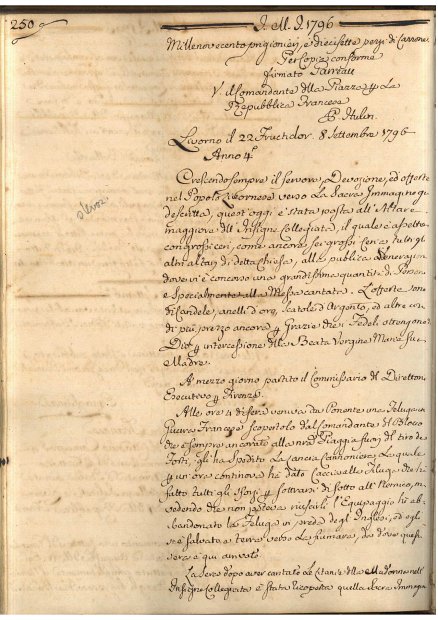 250
I. M. I. 1796
Mille novecento prigionieri, e diecisette pezzi di Cannone.
Per Copia conforme
firmato Garreau
V. il Comandante della Piazza p. la
Repubblica Francese
Hulin.
Livorno il 22 Fructidor. 8 Settembre 1796
Anno 4°
Crescendo sempre il fervore, Devozione, ed offerte
nel Popolo Livornese verso La Sacra Immagine qui
descritta, quest'oggi è stata posta all'Altare
maggiore dell'Insigne Collegiata, il quale è
con grossi ceri, come ancora sei grossi Ceri a tutti gl'
altri altari di detta Chiesa, alla publica
dove vi è concorso una grandissima quantità di Persone
e Specialmente alla Messa cantata. L'offerte sono
di Candele, anella d'oro, scatole d'Argento, ed altre cose
di più prezzo ancora p. Grazie che i Fedeli ottengono da
Dio p. intercessione della Beata Vergine Maria Sua
Madre.
A mezzo giorno partito il Commissario del Direttorio
Esecutivo p. Firenze.
Alle ore 4 di sera veniva da Ponente una Feluca
Guerra Francese scopertolo dal Comandante del Blocco
che è sempre ancorato alla nra Piaggia fuori del tiro de
Forti, gli ha spedito la Lancia Cannoniera, la quale
p. un'ora continova hà dato Caccia alla Filuga che hà
fatto tutti gli sforzi p. sottrarsi di sotto all'Nemico, ma
vedendo che non poteva riuscirli l'Equipaggio hà ab-
bandonato la Feluga in preda degl'Inglesi, ed egli
si è salvato a terra verso la fiumara, da dove questa
sera è qui arrivato.
La Sera dopo aver cantato le Litanie della Madonna nell'
Insigne Collegiata è stata ricoperta quella Sacra Immagine